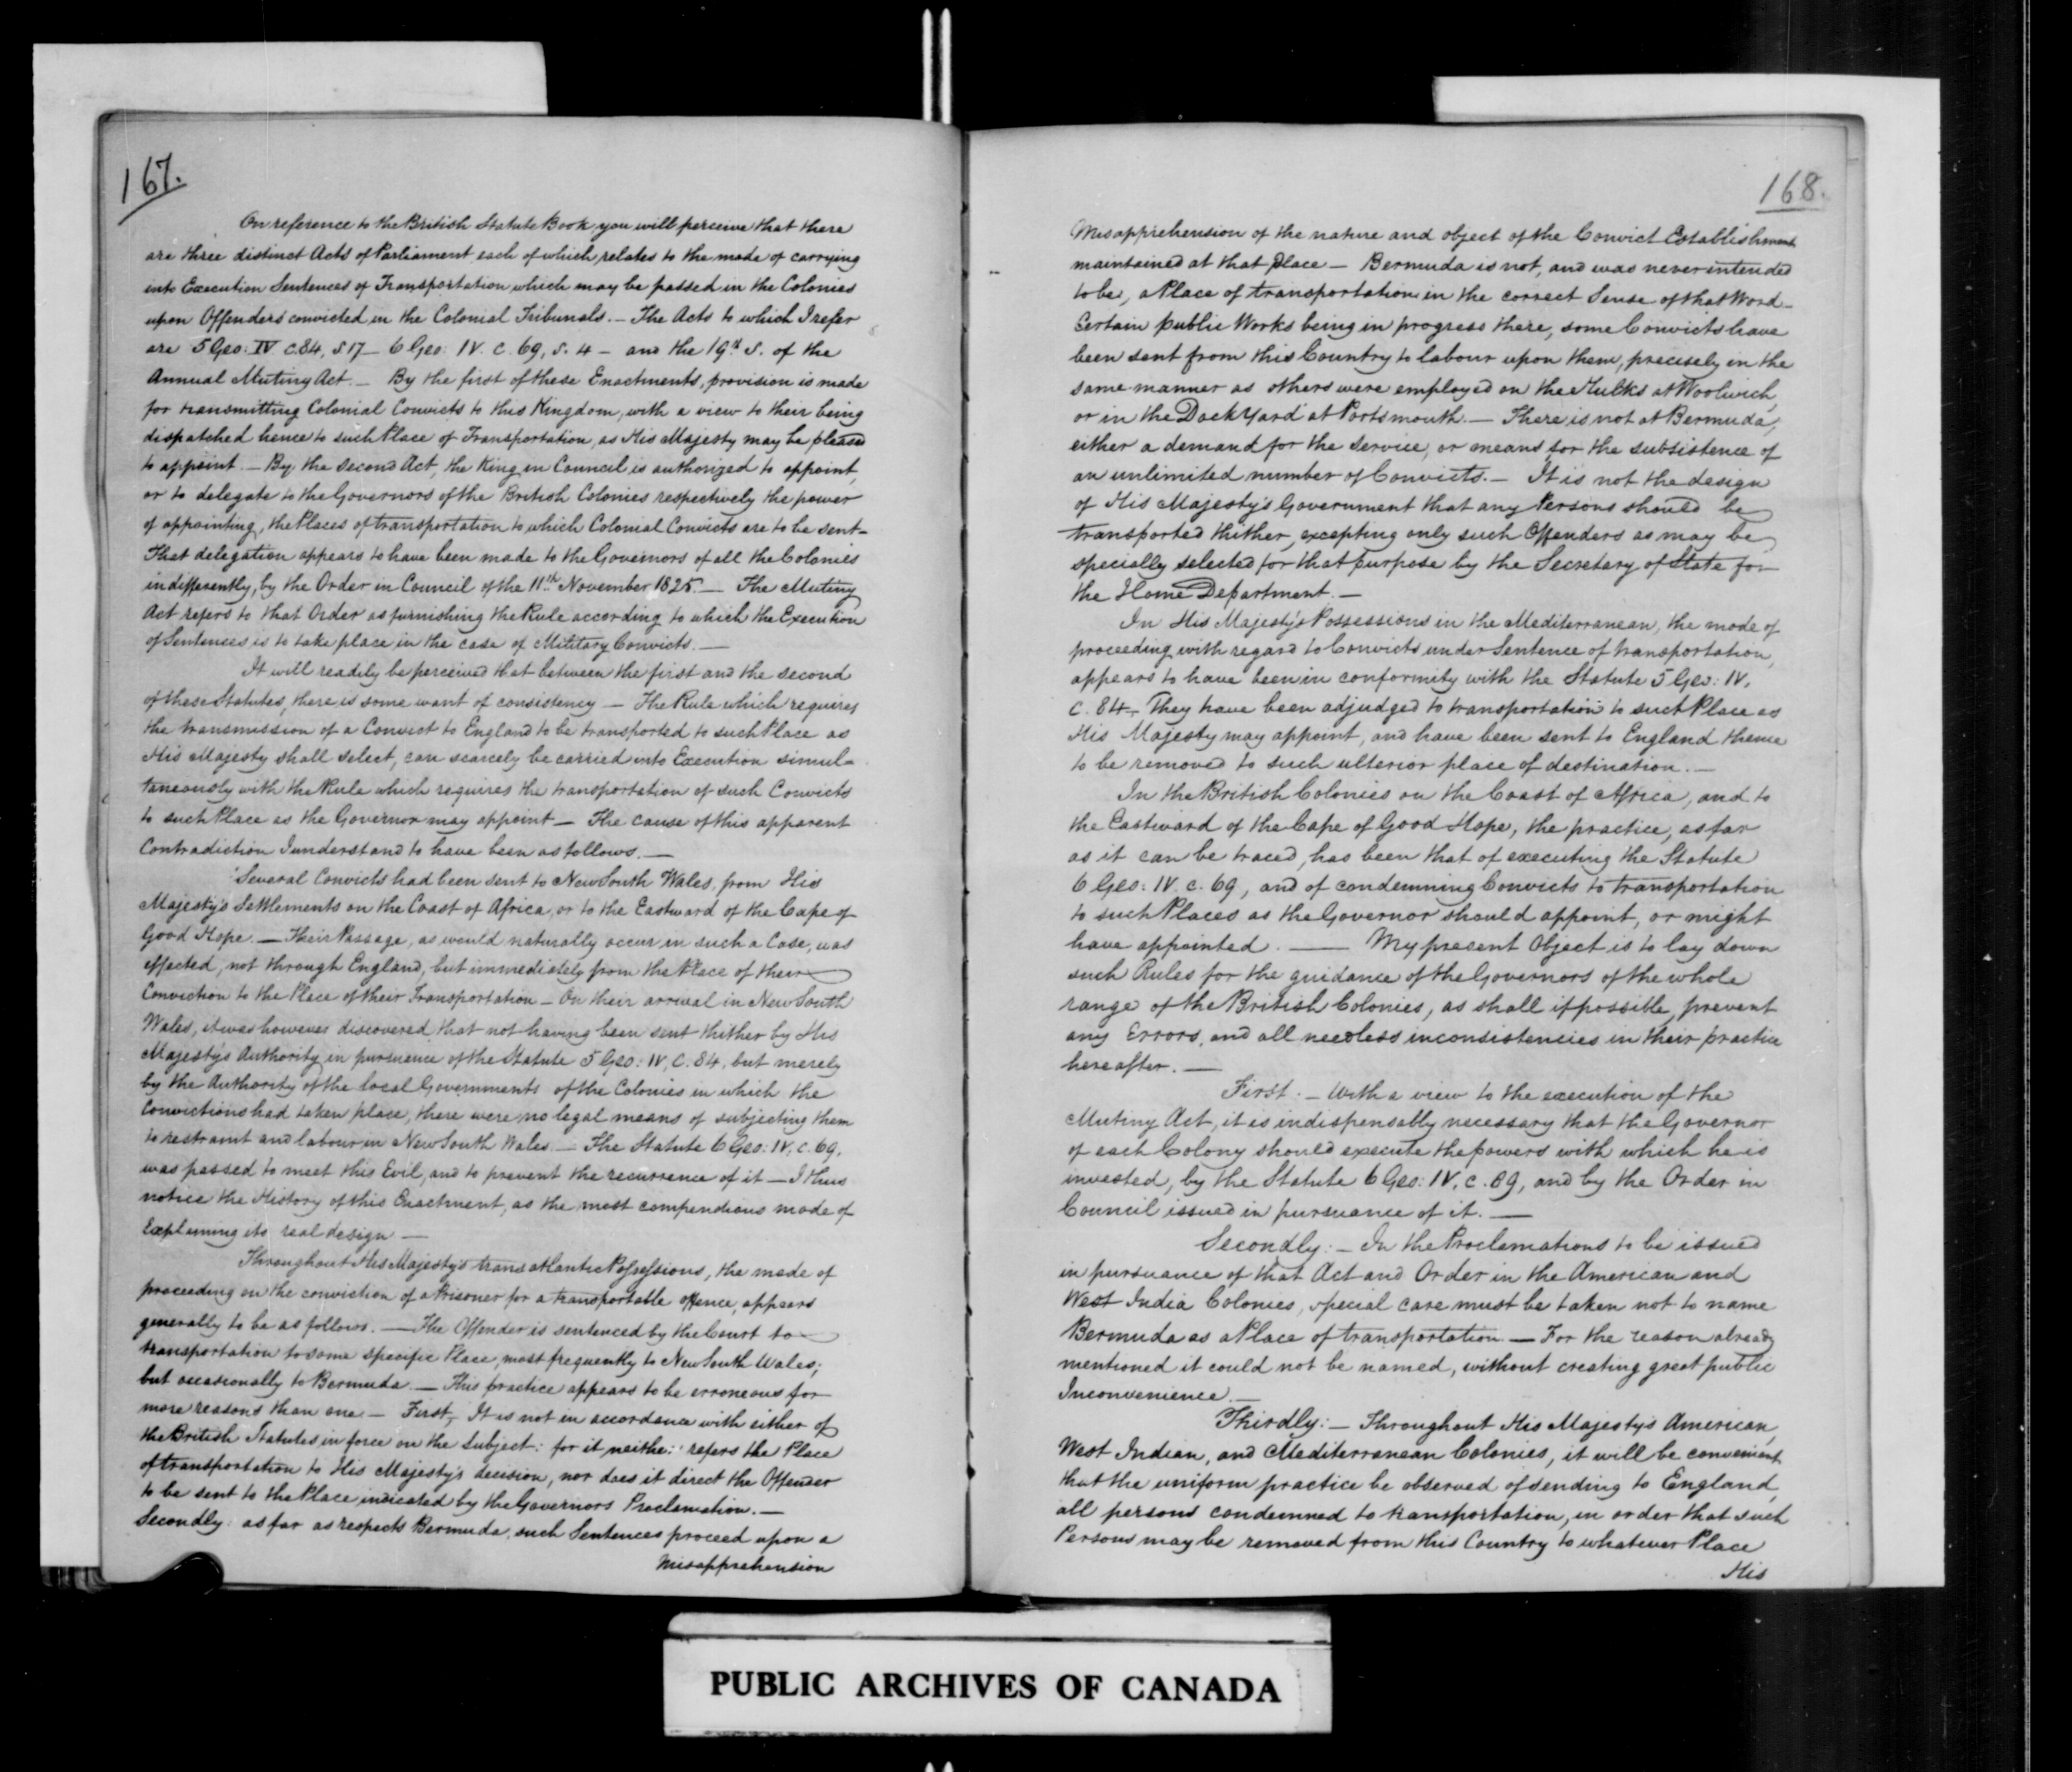 167.
On reference to the British Statute Book you will perceive that there
are three distinct Acts of Parliament each of which relates to the mode of carrying
into Execution Sentences of Transportation which may be passed in the Colonies
upon Offenders convicted in the Colonial Tribunals. — The Acts to which I refer
are 5 Geo: IV c. 84, S 17 — 6 Geo: IV. c. 69, s. 4 — and the 19th S. of the
Annual Mutiny Act. — By the first of these Enactments, provision is made
for transmitting Colonial Convicts to this Kingdom, with a view to their being
dispatched hence to such Place of Transportation, as His Majesty may be pleased
to appoint. — By the second Act, the King in Council is authorized to appoint,
or to delegate to the Governors of the British Colonies respectively the power
of appointing, the Places of transportation to which Colonial Convicts are to be sent —
That delegation appears to have been made to the Governors of all the Colonies
indifferently, by the Order in Council of the 11th November 1825. — The Mutiny
Act refers to that Order as furnishing the Rule according to which the Execution
of Sentences is to take place in the case of Military Convicts. —
It will readily be perceived that between the first and the second
of these Statutes, there is some want of consistency — The Rule which requires
the transmission of a Convict to England to be transported to such Place as
His Majesty shall select, can scarcely be carried into Execution simul=
taneously with the Rule which requires the transportation of such Convicts
to such Place as the Governor may appoint — The cause of this apparent
Contradiction I understand to have been as follows. —
Several Convicts had been sent to New South Wales, from His
Majesty's Settlements on the Coast of Africa, or to the Eastward of the Cape of
Good Hope. — Their Passage, as would naturally occur in such a Case, was
effected, not through England, but immediately from the Place of their
Conviction to the Place of their Transportation — On their arrival in New South
Wales, it was however discovered that not having been sent thither by His
Majesty's Authority in pursuance of the Statute 5 Geo: IV, C. 84, but merely
by the Authority of the local Governments of the Colonies in which the
Convictions had taken place, there were no legal means of subjecting them
to restraint and labour in New South Wales. — The Statute 6 Geo: IV, c. 69,
was passed to meet this Evil, and to prevent the recurrence of it — I thus
notice the History of this Enactment, as the most compendious mode of
Explaining its real design —
Throughout His Majesty's transatlantic Possessions, the mode of
proceeding on the conviction of a Prisoner for a transportable offence, appears
generally to be as follows. — The Offender is sentenced by the Court to
transportation to some specific Place, most frequently to New South Wales;
but occasionally to Bermuda. — This practice appears to be erroneous for
more reasons than one — First, It is not in accordance with either of
the British Statutes in force on the subject: for it neither refers the Place
of transportation to His Majesty's decision, nor does it direct the Offender
to be sent to the Place indicated by the Governors Proclamation. —
Secondly: as far as respects Bermuda, such Sentences proceed upon a
Misapprehension
168.
Misapprehension of the nature and object of the Convict Establishment
maintained at that place — Bermuda is not, and was never intended
to be, a Place of transportation in the correct Sense of that Word —
Certain public Works being in progress there, some Convicts have
been sent from this Country to labour upon them, precisely in the
same manner as others were employed on the Hulks at Woolwich,
or in the Dock Yard at Portsmouth. — There is not at Bermuda,
either a demand for the service, or means for the subsistence of
an unlimited number of Convicts. — It is not the design
of His Majesty's Government that any Persons should be
transported thither, excepting only such Offenders as may be
specially selected for that purpose by the Secretary of State for
the Home Department. —
In His Majesty's Possessions in the Mediterranean, the mode of
proceeding with regard to Convicts under Sentence of transportation,
appears to have been in conformity with the Statute 5 Geo: IV,
c. 84 — They have been adjudged to transportation to such Place as
His Majesty may appoint, and have been sent to England thence
to be removed to such ulterior place of destination. —
In the British Colonies on the Coast of Africa, and to
the Eastward of the Cape of Good Hope, the practice, as far
as it can be traced, has been that of executing the Statute
6 Geo: IV. c. 69, and of condemning Convicts to transportation
to such Places as the Governor should appoint, or might
have appointed. — My present Object is to lay down
such Rules for the guidance of the Governors of the whole
range of the British Colonies, as shall if possible, prevent
any Errors, and all needless inconsistencies in their practice
hereafter. —
First. — With a view to the execution of the
Mutiny Act, it is indispensably necessary that the Governor
of each Colony should execute the powers with which he is
invested, by the Statute 6 Geo: IV, c. 69, and by the Order in
Council issued in pursuance of it. —
Secondly: — In the Proclamations to be issued
in pursuance of that Act and Order in the American and
West India Colonies, special care must be taken not to name
Bermuda as a Place of transportation — For the reason already
mentioned it could not be named, without creating great public
Inconvenience —
Thirdly: — Throughout His Majesty's American,
West Indian, and Mediterranean Colonies, it will be convenient
that the uniform practice be observed of sending to England,
all persons condemned to transportation, in order that such
Persons may be removed from this Country to whatever Place
His
PUBLIC ARCHIVES OF CANADA